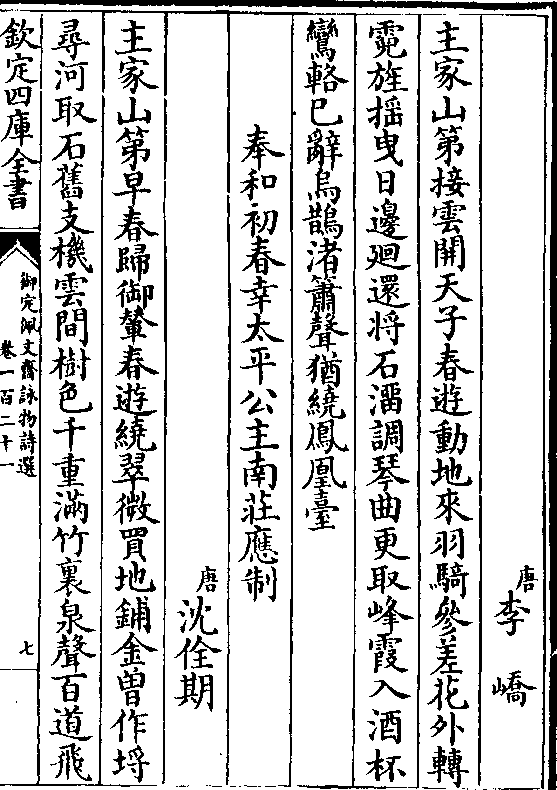 唐李嶠
主家山第接雲開天子春遊動地來羽騎參差花外轉
霓旌揺曳日邊廻還将石溜調琴曲更取峰霞入酒杯
鸞輅已辭烏鵲渚簫聲猶繞鳳凰臺
奉和初春幸太平公主南莊應制
唐沈佺期
主家山第早春歸御輦春遊繞翠微買地鋪金曽作埒
尋河取石舊支機雲間樹色千重滿竹裏泉聲百道飛
欽定四庫全書
御定佩文齋詠物詩選
卷一百二十一
七